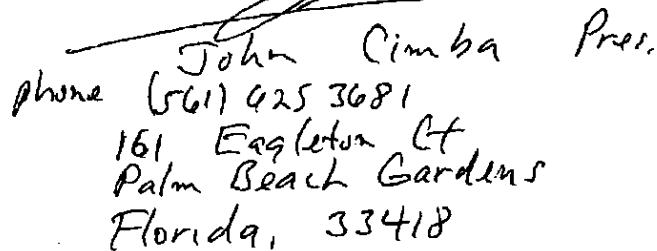 John Cimba Pres.
phone (561) 625 3681
161 Eagleton Ct
Palm Beach Gardens
Florida, 33418